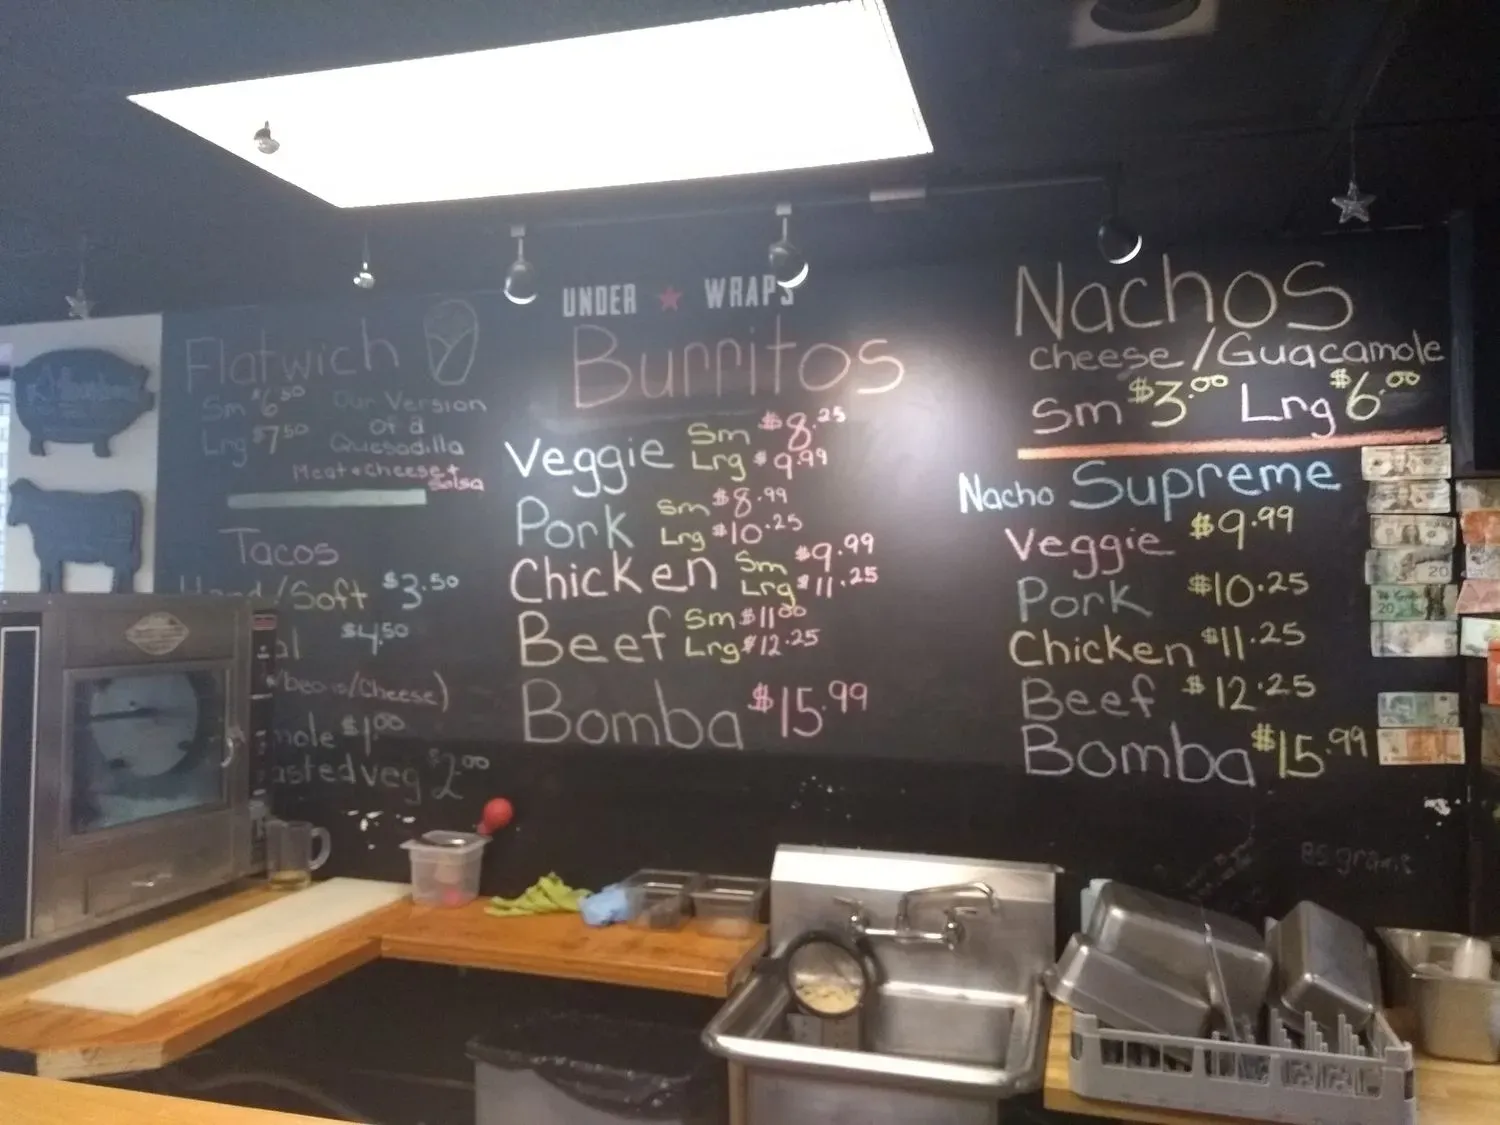 Flatwich
Sm $6.50
Lrg $7.50
Our Version
of a
Quesadilla
Meat + Cheese +
Salsa
Tacos
Hard/Soft $3.50
$4.50
beans/Cheese)
$1.00
veg $2.00
UNDER ★ WRAPS
Burritos
Veggie Sm $8.25
Lrg $9.99
Pork Sm $8.99
Lrg $10.25
Chicken Sm $9.99
Lrg $11.25
Beef Sm $11.00
Lrg $12.25
Bomba $15.99
Nachos
cheese/Guacamole
Sm $3.00 Lrg $6.00
Nacho Supreme
Veggie $9.99
Pork $10.25
Chicken $11.25
Beef $12.25
Bomba $15.99
85 grams